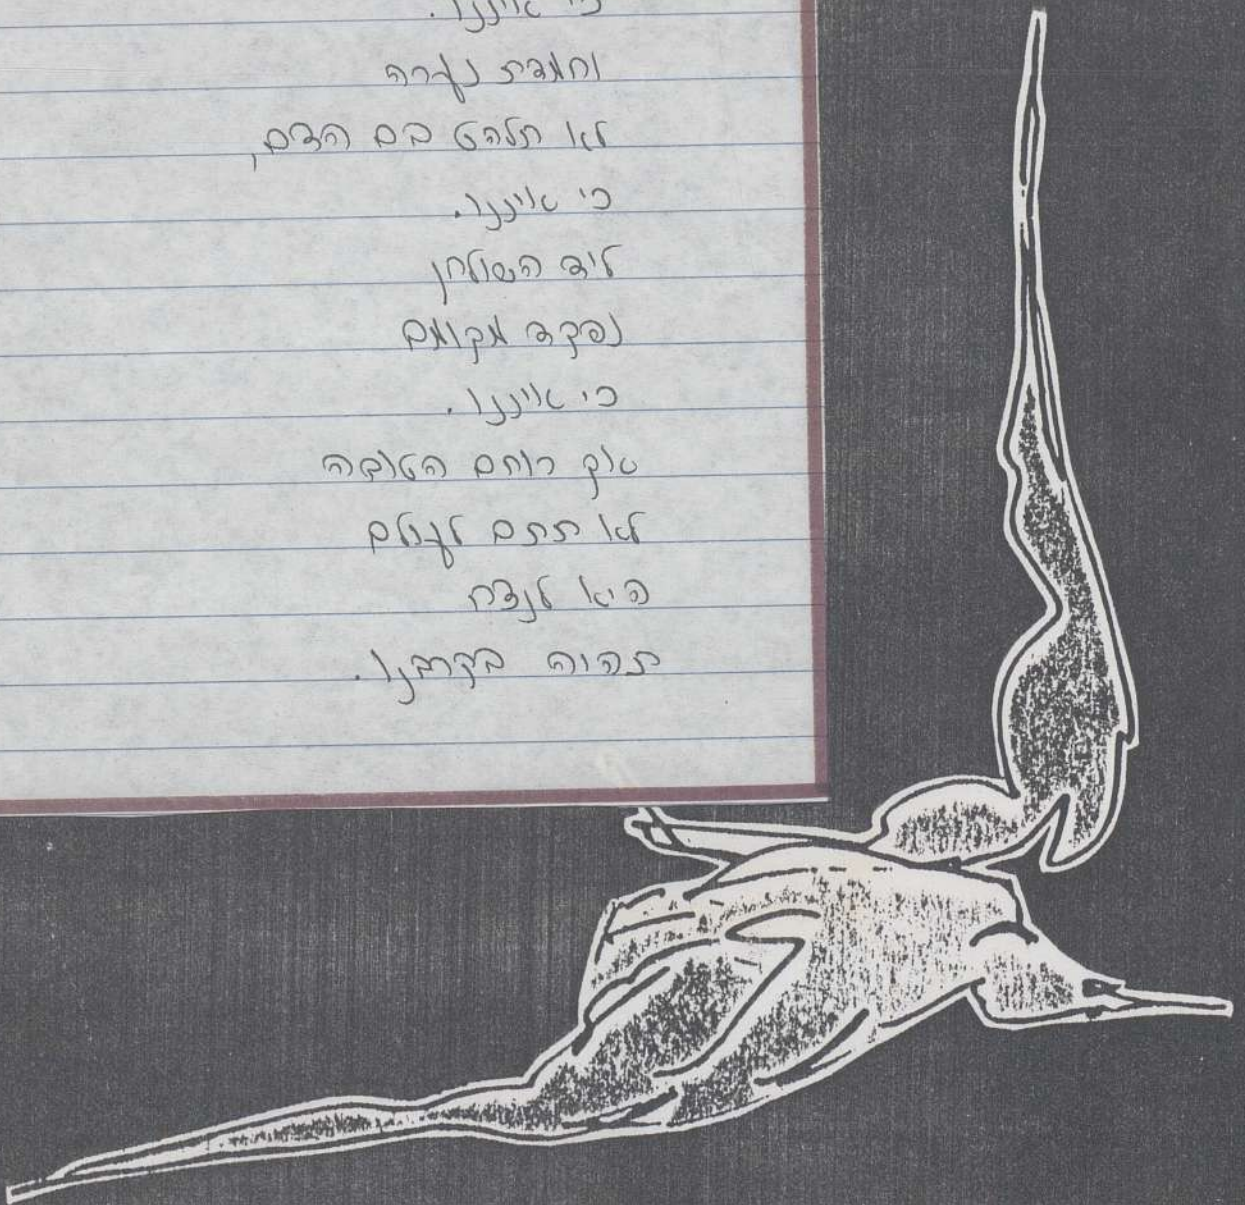 כי איננו.
וחמדת נערה
לא תלהט בם הדם,
כי איננו.
ליד השולחן
נפקד מקומם
כי איננו.
אך רוחם הטובה
לא תתם לעולם
היא לנצח
תהיה בקרבנו.